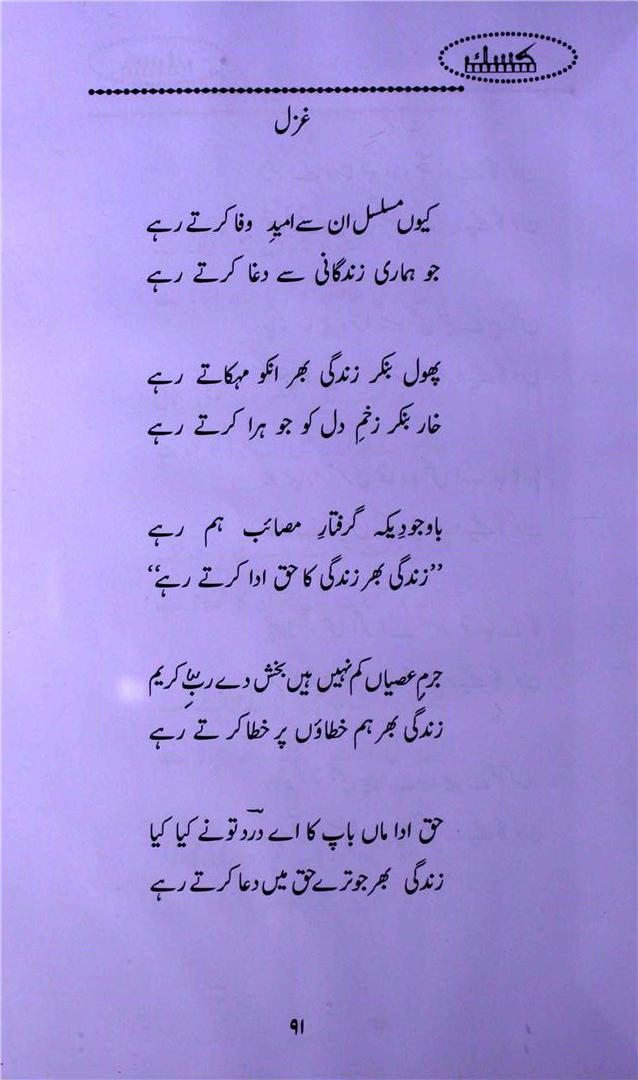 کسک
غزل
کیوں مسلسل ان سے امیدِ وفا کرتے رہے
جو ہماری زندگانی سے دغا کرتے رہے
پھول بنکر زندگی بھر انکو مہکاتے رہے
خار بنکر زخمِ دل کو جو ہرا کرتے رہے
باوجودِیکہ گرفتارِ مصائب ہم رہے
”زندگی بھر زندگی کا حق ادا کرتے رہے“
جرمِ عصیاں کم نہیں ہیں بخش دے ربِّ کریم
زندگی بھر ہم خطاؤں پر خطا کرتے رہے
حق ادا ماں باپ کا اے دردؔ تو نے کیا کیا
زندگی بھر جو ترے حق میں دعا کرتے رہے
۹۱